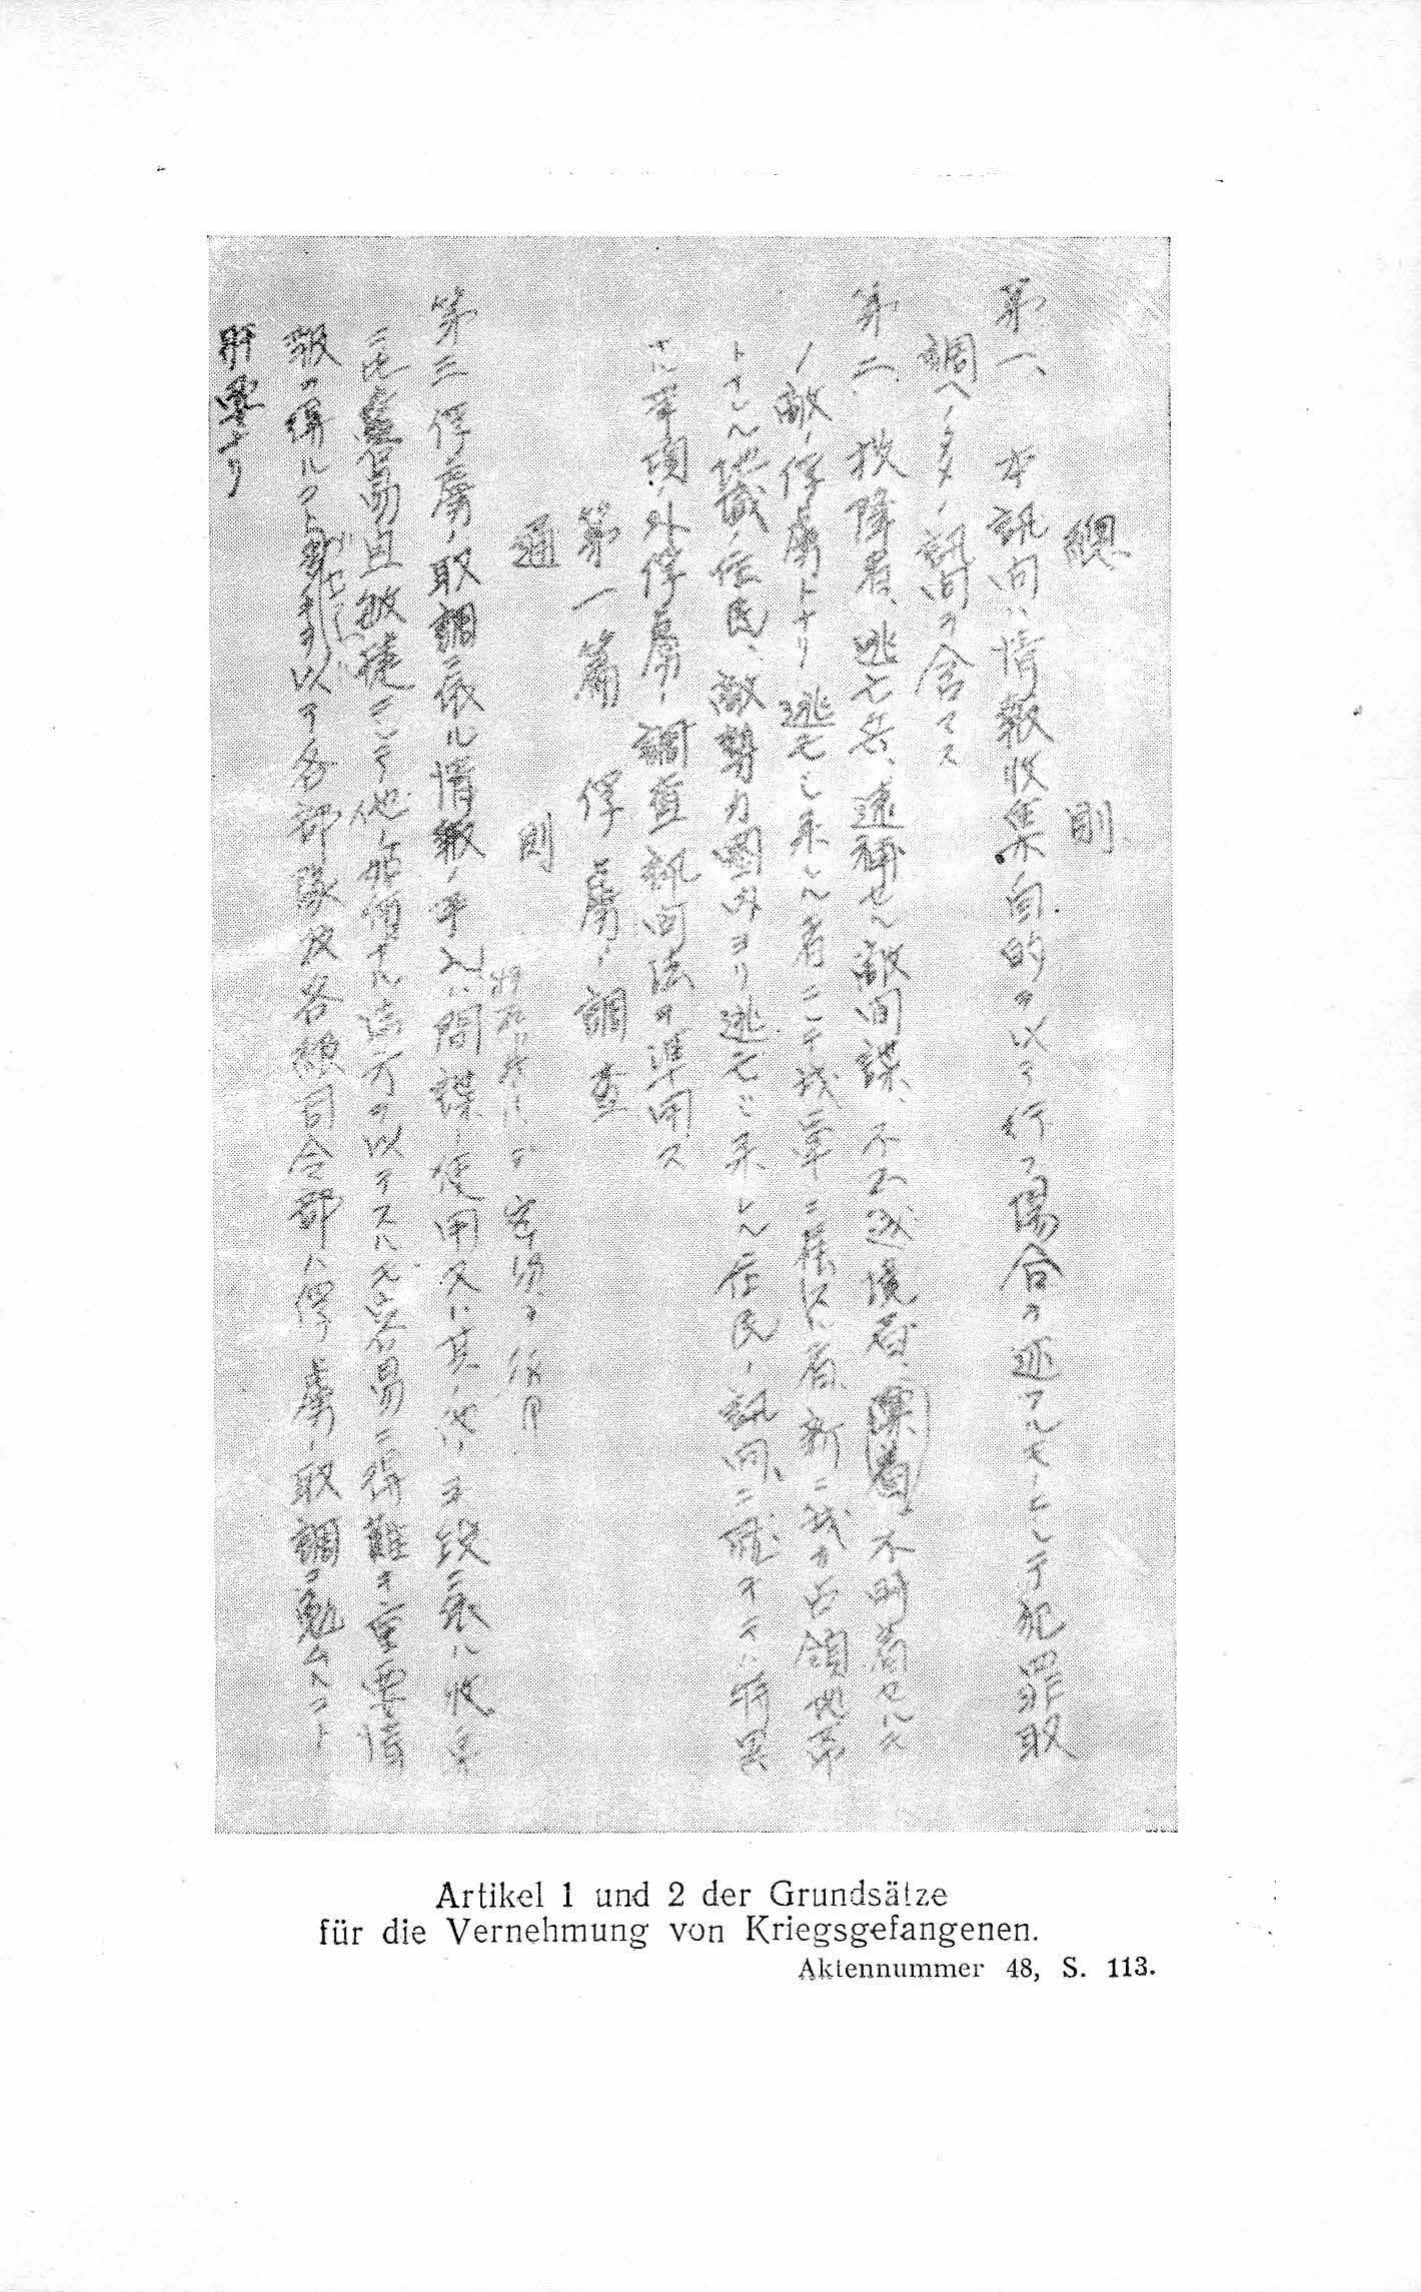 總則
第一、本訊問ハ情報收集ノ目的ヲ以テ行フ場合ヲ述フルモノニシテ犯罪取
調ヘノタメノ訊問ヲ含マス
第二、投降者、逃亡兵、逮捕セル敵間諜、不法越境者、不明
ノ敵ノ俘虜トナリ逃亡シ來レル者ニシテ我軍ニ者、新ニ我カ占領地
トナレル地域ノ住民、敵勢力圏外ヨリ逃亡シ來レル住民ノ訊問ニ就キテハ特異
ナル事項ノ外俘虜ノ調査訊問法ヲ準用ス
第一篇 俘虜ノ調査
通則
第三 俘虜ノ取調ニ依ル情報ノ手入ハ間諜ノ使用又ハ其ノ他ノ手段ニ依ル收集
ニ比シ簡易且敏捷ニシテ他ノ ナル法方ヲ以テスルモ容易ニ得難キ重要情
報ヲ得ルコト ヲ以テ各部隊及各級司令部ハ俘虜ノ取調ヲ勉ムルコト
肝要ナリ
Artikel 1 und 2 der Grundsätze
für die Vernehmung von Kriegsgefangenen.
Aktennummer 48, S. 113.